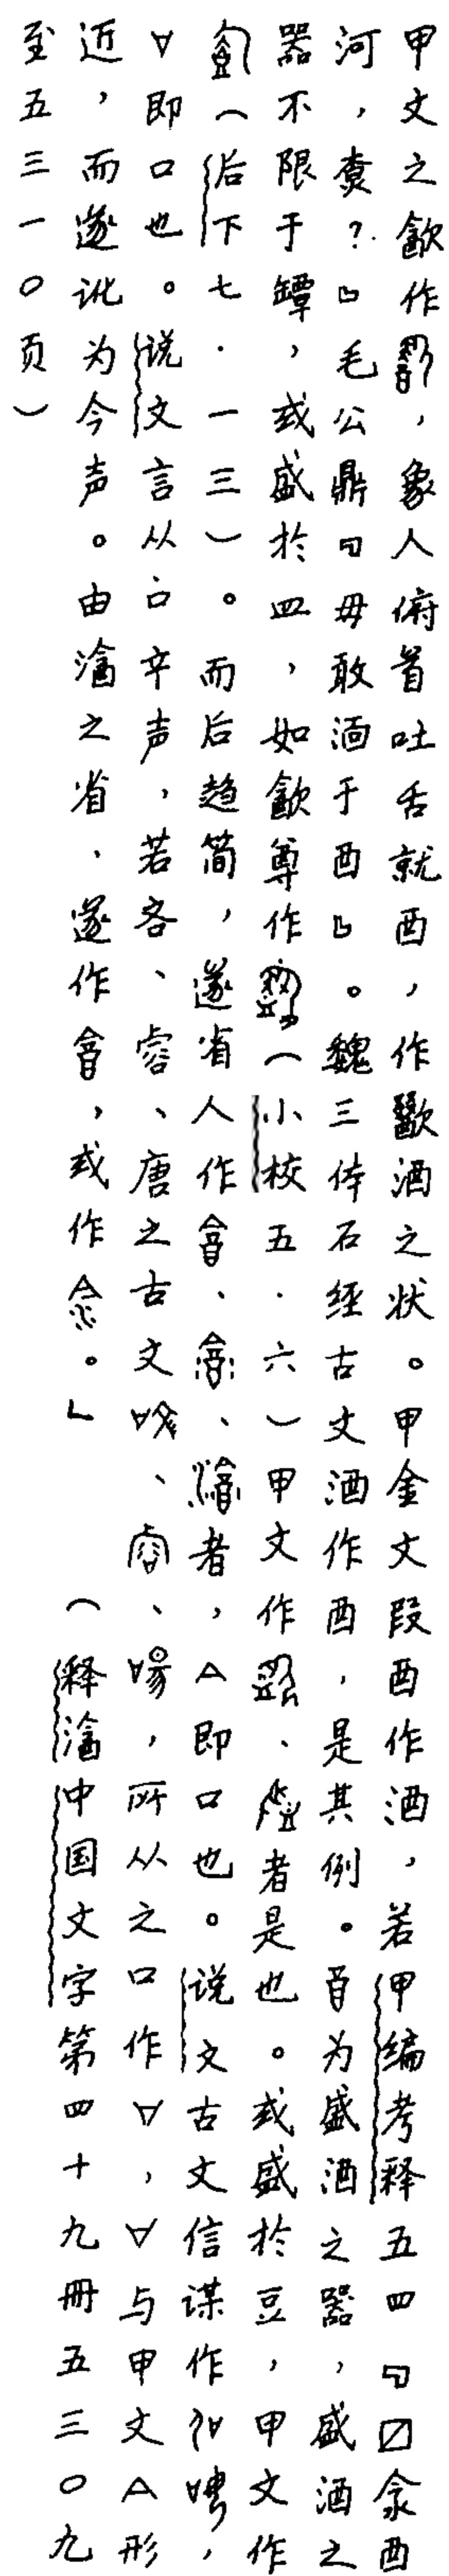 甲文之歙作，象人俯首吐舌就酉，作歠酒之状。甲金文段酉作酒，若甲编考释五四﹃〼氽酉
河，𡙇？﹄毛公鼎﹃毋敢湎于酉﹄。魏三体石经古文酒作酉，是其例。酉为盛酒之器，盛酒之
器不限于罈，或盛於皿，如歙尊作（小校五·六）甲文作、者是也。或盛於豆，甲文作
（后下七·一三）。而后趋简，遂省人作、、者，A即口也。说文古文信谋作、，
∀即口也。说文言从口䇂声，若吝、容、唐之古文、、啺，所从之口作∀，∀与甲文A形
近，而遂讹为今声。由之省、遂作，或作。」（释中国文字第四十九册五三〇九
至五三一〇页）